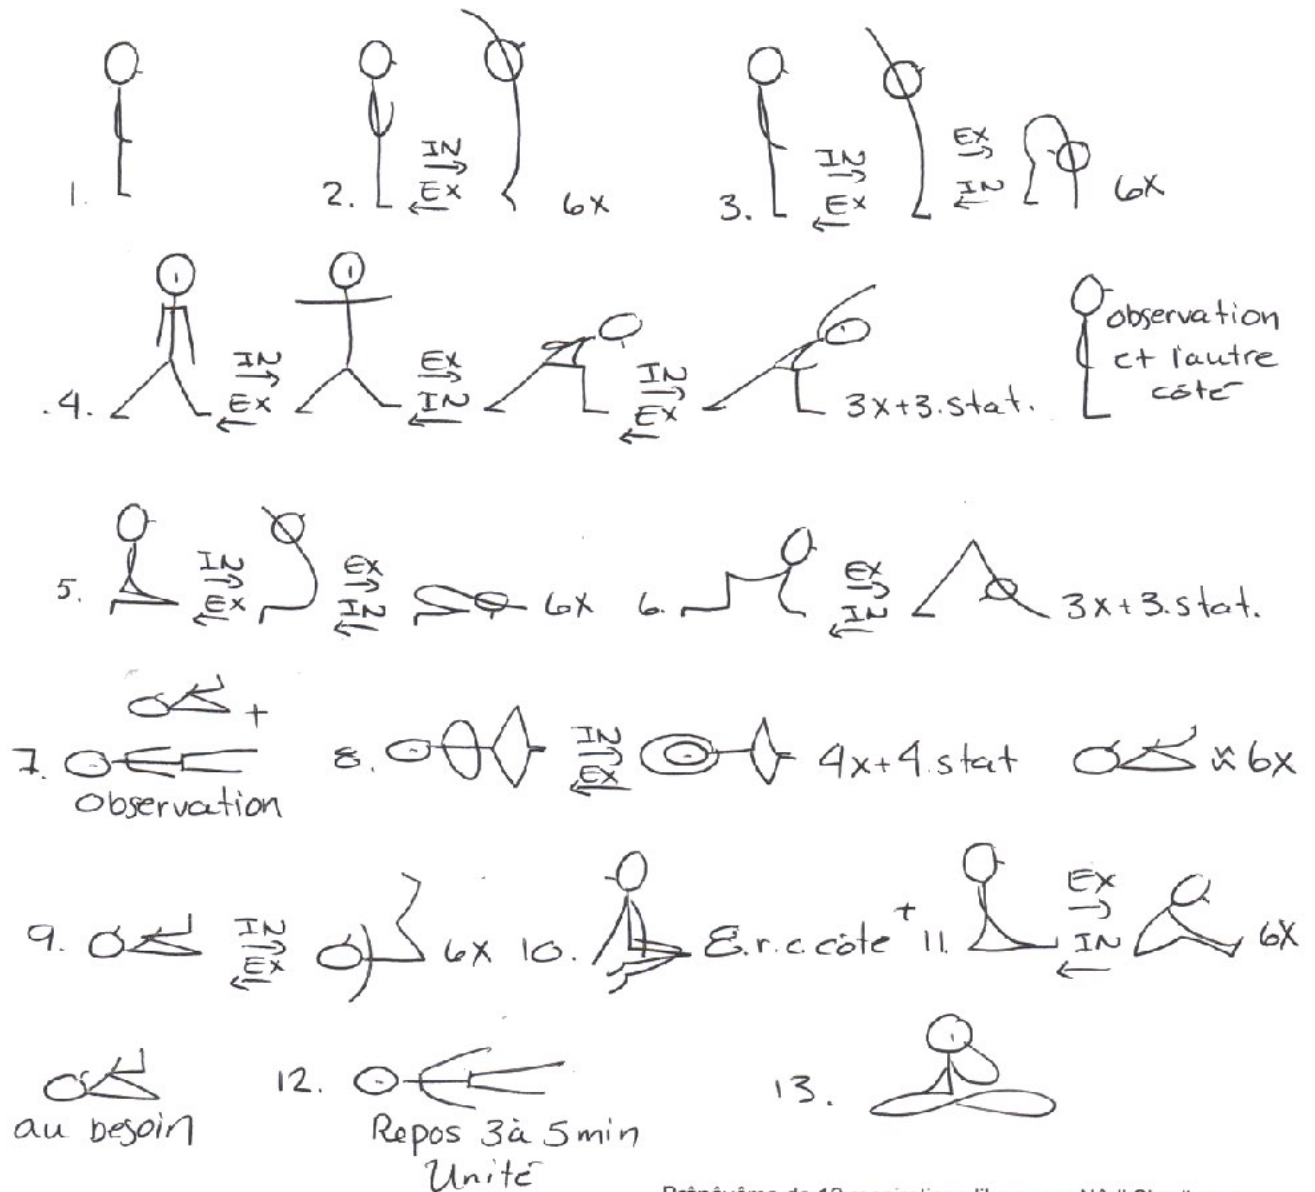 1.
2. IN EX 6x
3. IN EX EX IN 6x
4. IN EX EX IN IN EX 3x+3.stat. observation
et l'autre
côté
5. IN EX EX IN 6x 6. EX IN 3x+3.stat.
+
7. Observation
8. IN EX 4x+4.stat 6x
9. IN EX 6x 10. 8.r.c.côté + 11. EX IN 6x
au besoin
12. Repos 3à 5min
Unité
13.